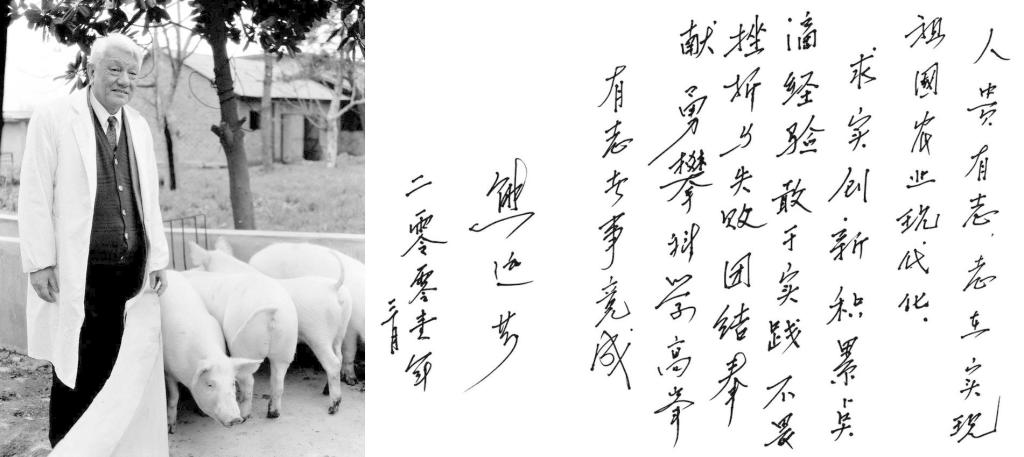 人贵有志，志在实现
祖国农业现代化。
求实创新积累奌
滴经验敢于实践不畏
挫折与失败团结奉
献勇攀科学高峰
有志者事竟成
熊远著
二零零壹年
月